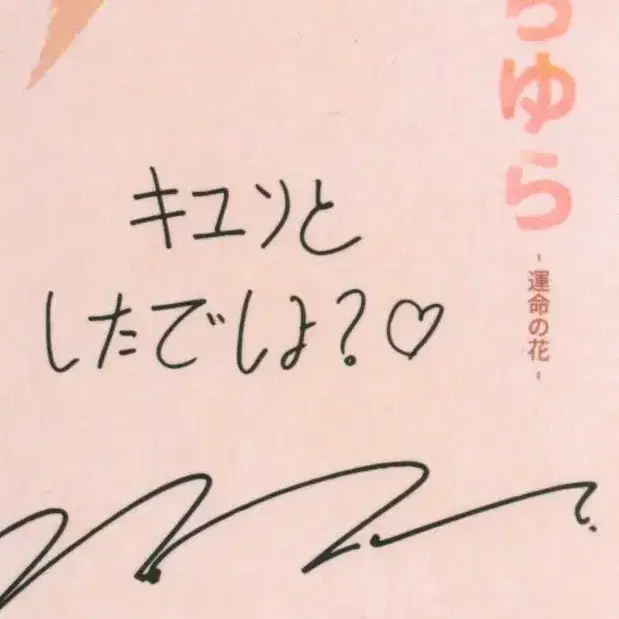 キュンと
したでしょ？♡
らゆら
-運命の花-